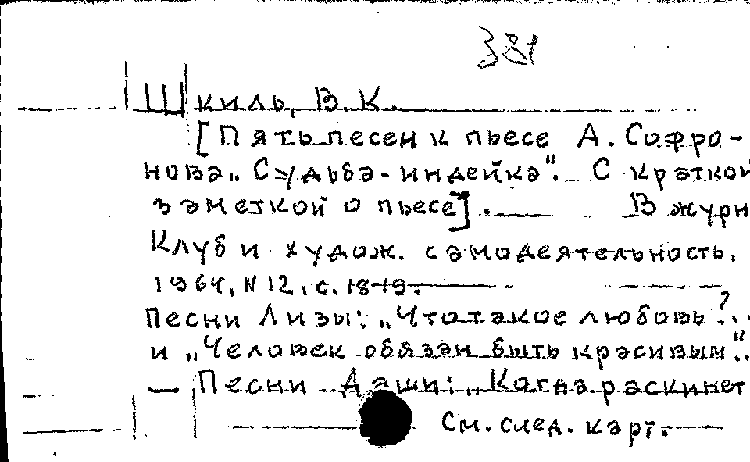 381
Шкиль, В. К.
[Пять песен к пьесе А. Софро-
нова „Судьба-индейка". С краткой
заметкой о пьесе]. В журн
Клуб и худож. самодеятельность,
1964, N 12, с. 18-19.
Песни Лизы: „Что такое любовь?..
и „Человек обязан быть красивым"..
— Песни Даши: „Когда раскинет
См. след. карт.